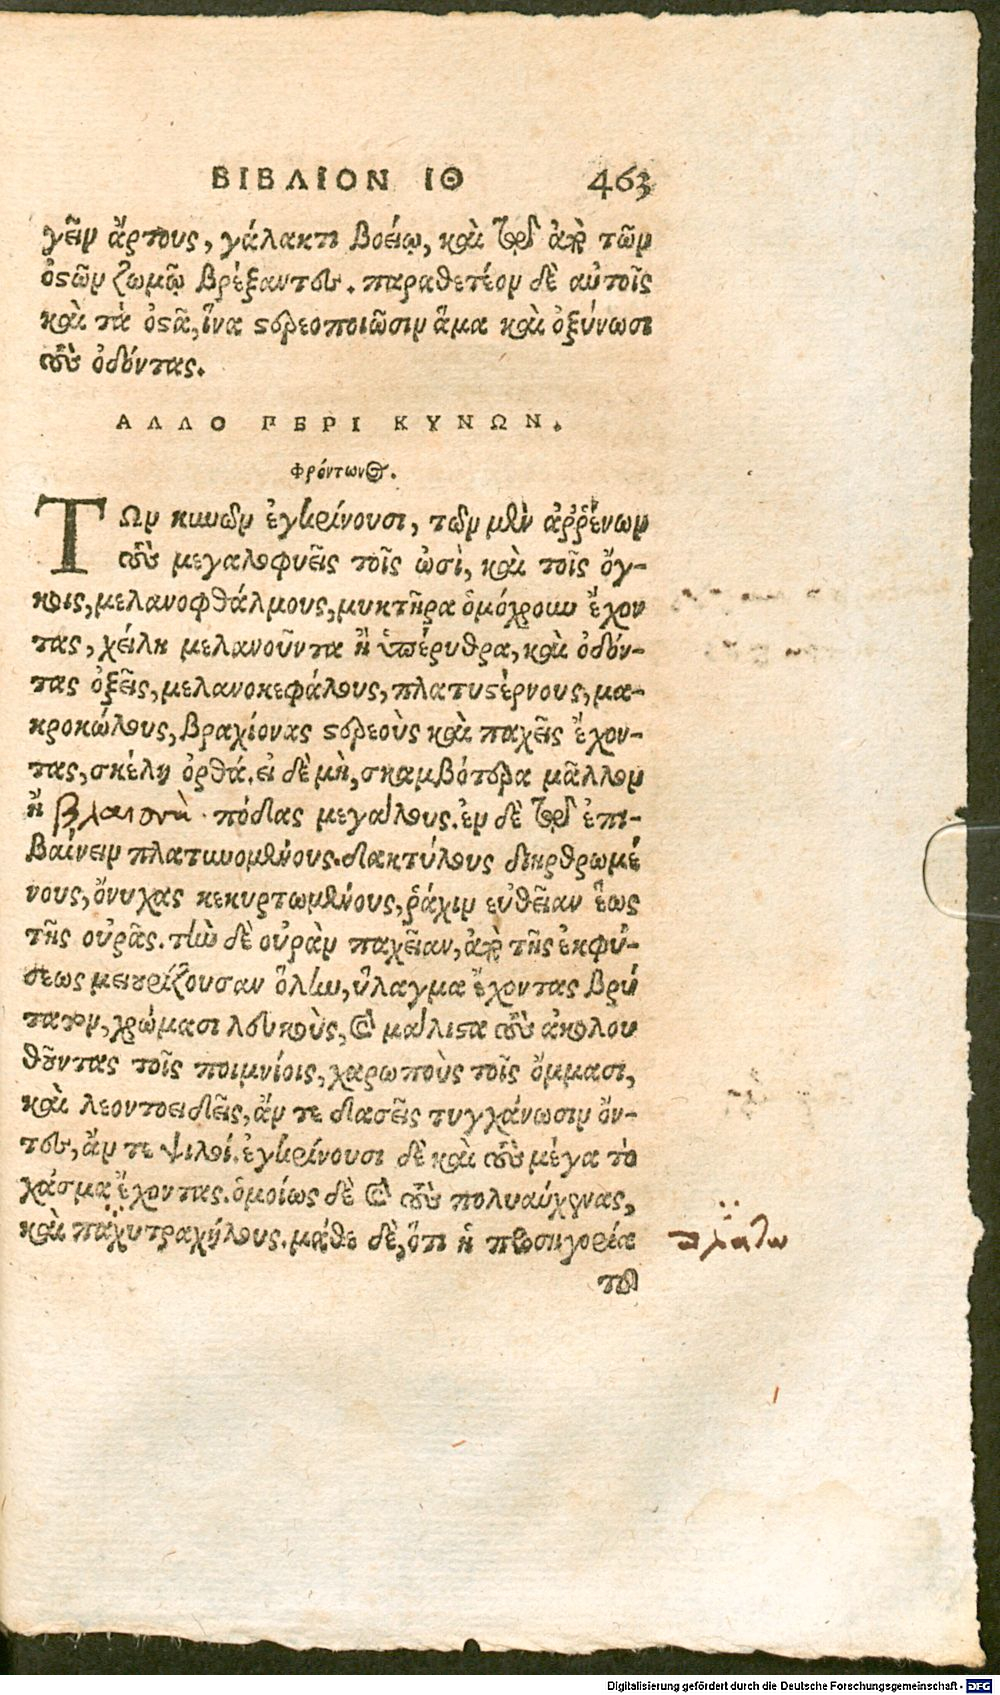 ΒΙΒΛΙΟΝ ΙΘ 463
γεῖν ἄρτους, γάλακτι βοείῳ, καὶ τῷ ἀπὸ τῶν
ὀστῶν ζωμῷ βρέξαντες. παραθετέον δὲ αὐτοῖς
καὶ τὰ ὀστᾶ, ἵνα στερεοποιῶσιν ἅμα καὶ ὀξύνωσι
τοὺς ὀδόντας.
ΑΛΛΟ ΠΕΡΙ ΚΥΝΩΝ.
Φρόντωνος.
ΤΩν κυνῶν ἐγκρίνουσι, τῶν μὲν ἀῤῥένων
τοὺς μεγαλοφυεῖς τοῖς ὠσὶ, καὶ τοῖς ὄγ-
κοις, μελανοφθάλμους, μυκτῆρα ὁμόχρουν ἔχον
τας, χείλη μελανοῦντα ἢ ὑπέρυθρα, καὶ ὀδόν-
τας ὀξεῖς, μελανοκεφάλους, πλατυστέρνους, μα-
κροκώλους, βραχίονας στερεοὺς καὶ παχεῖς ἔχον-
τας, σκέλη ὀρθά. εἰ δὲ μὴ, σκαμβότερα μᾶλλον
ἢ βλαισὰ. πόδας μεγάλους. ἐν δὲ τῷ ἐπι-
βαίνειν πλατυνομένους. δακτύλους διηρθρωμέ
νους, ὄνυχας κεκυρτωμένους, ῥάχιν εὐθεῖαν ἕως
τῆς οὐρᾶς. τὴν δὲ οὐρὰν παχεῖαν, ἀπὸ τῆς ἐκφύ-
σεως μειουρίζουσαν ὅλην, ὕλαγμα ἔχοντας βρύ
τατον, χρώμασι λευκοὺς, καὶ μάλιστα τοὺς ἀκολου
θοῦντας τοῖς ποιμνίοις, χαρωποὺς τοῖς ὄμμασι,
καὶ λεοντοειδεῖς, ἄν τε δασεῖς τυγχάνωσιν ὄν-
τες, ἄν τε ψιλοί. ἐγκρίνουσι δὲ καὶ τοὺς μέγα τὸ
χάσμα ἔχοντας. ὁμοίως δὲ καὶ τοὺς πολυαύχενας,
καὶ παχυτραχήλους. μάθε δὲ, ὅτι ἡ προσηγορία
τοῦ